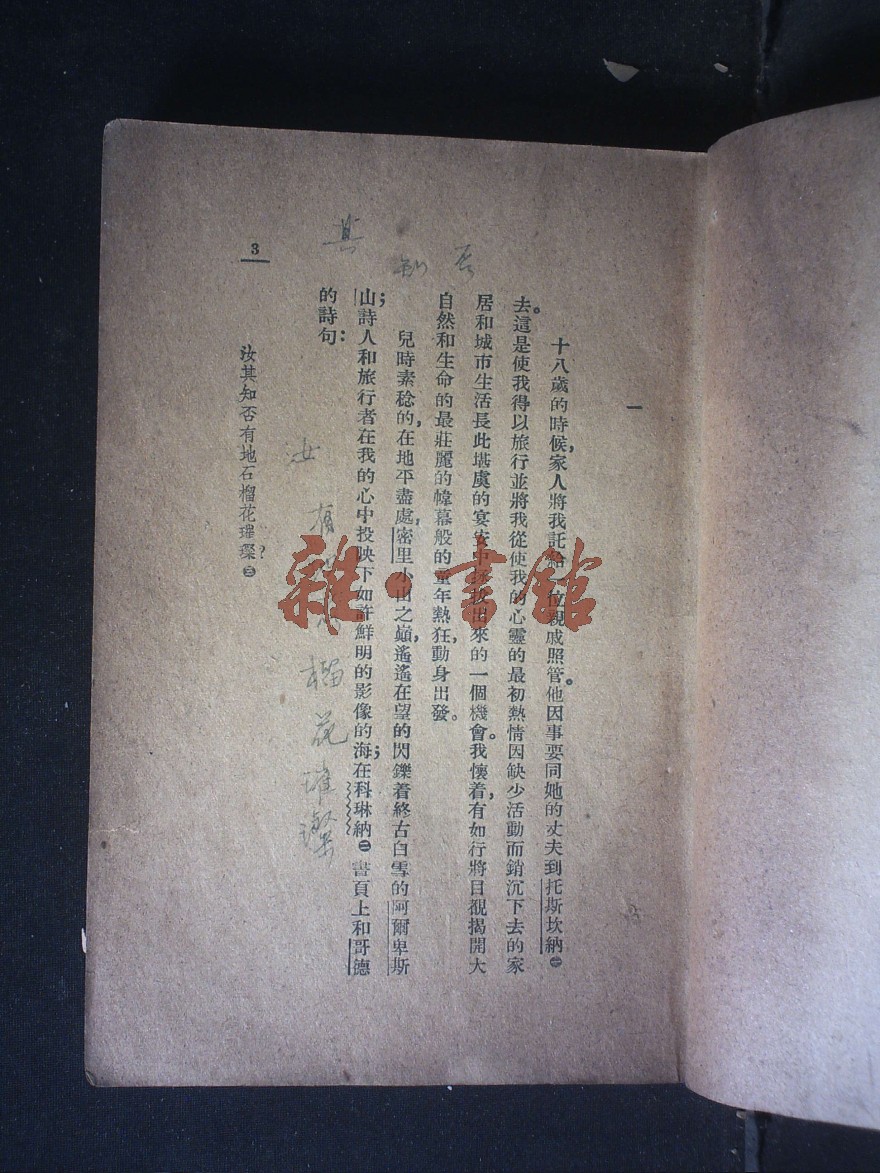 一
十八歲的時候,家人將我託給一位親戚照管。他因事要同她的丈夫到托斯坎納㊀
去。這是使我得以旅行並將我從使我的心靈的最初熱情因缺少活動而銷沉下去的家
居和城市生活長此堪虞的宴安中出來的一個機會。我懷着,有如行將目覩揭開大
自然和生命的最莊麗的幃幕般的童年熱狂,動身出發。
兒時素稔的,在地平盡處,密里小山之巔,遙遙在望的閃鑠着終古白雪的阿爾卑斯
山;詩人和旅行者在我的心中投映下如許鮮明的影像的海;在科琳納㊁書頁上和哥德
的詩句:
汝其知否有地石榴花璀璨?㊂
3
其
否
汝
有榴花璀璨
雜·書館